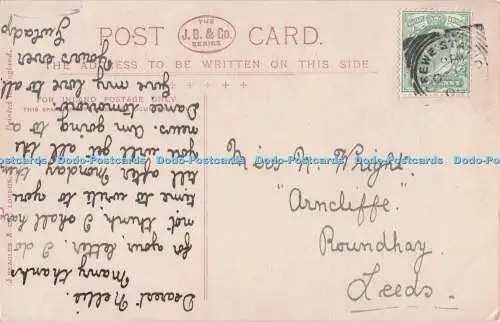 POST CARD.
THE
J.B. & Co.
SERIES
THE ADDRESS TO BE WRITTEN ON THIS SIDE.
FOR INLAND POSTAGE ONLY
Dearest Nellie.
Many thanks
for your letter. I do
not think I shall have
time to write to you
till after Monday then
you will get all the
news. Am going to a
Dance tomorrow.
Give my love to all
Yours ever
Miss N. Wright.
"Arncliffe.
Roundhay.
Leeds.
Dodo-Postcards Dodo-Postcards Dodo-Postcards Dodo-Postcards